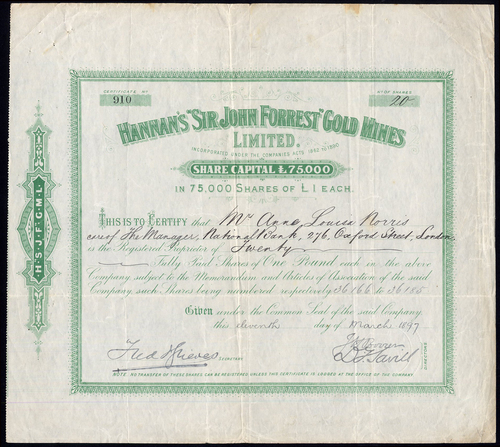 CERTIFICATE Nº
910
Nº OF SHARES
20
HANNAN'S "SIR JOHN FORREST" GOLD MINES
LIMITED.
INCORPORATED UNDER THE COMPANIES ACTS 1862 TO 1890
SHARE CAPITAL £75,000
IN 75,000 SHARES OF £1 EACH.
THIS IS TO CERTIFY that Mrs Anne Louisa Norris
care of The Manager, National Bank, 276, Oxford Street, London,
is the Registered Proprietor of Twenty
Fully Paid Shares of ONE POUND each in the above
Company, subject to the Memorandum and Articles of Association of the said
Company, such Shares being numbered respectively 36166 to 36185
Given under the Common Seal of the said Company
this eleventh day of March 1897.
SECRETARY
DIRECTORS
NOTE. NO TRANSFER OF THESE SHARES CAN BE REGISTERED UNLESS THIS CERTIFICATE IS LODGED AT THE OFFICE OF THE COMPANY.
H.S.J.F.G.M.L.